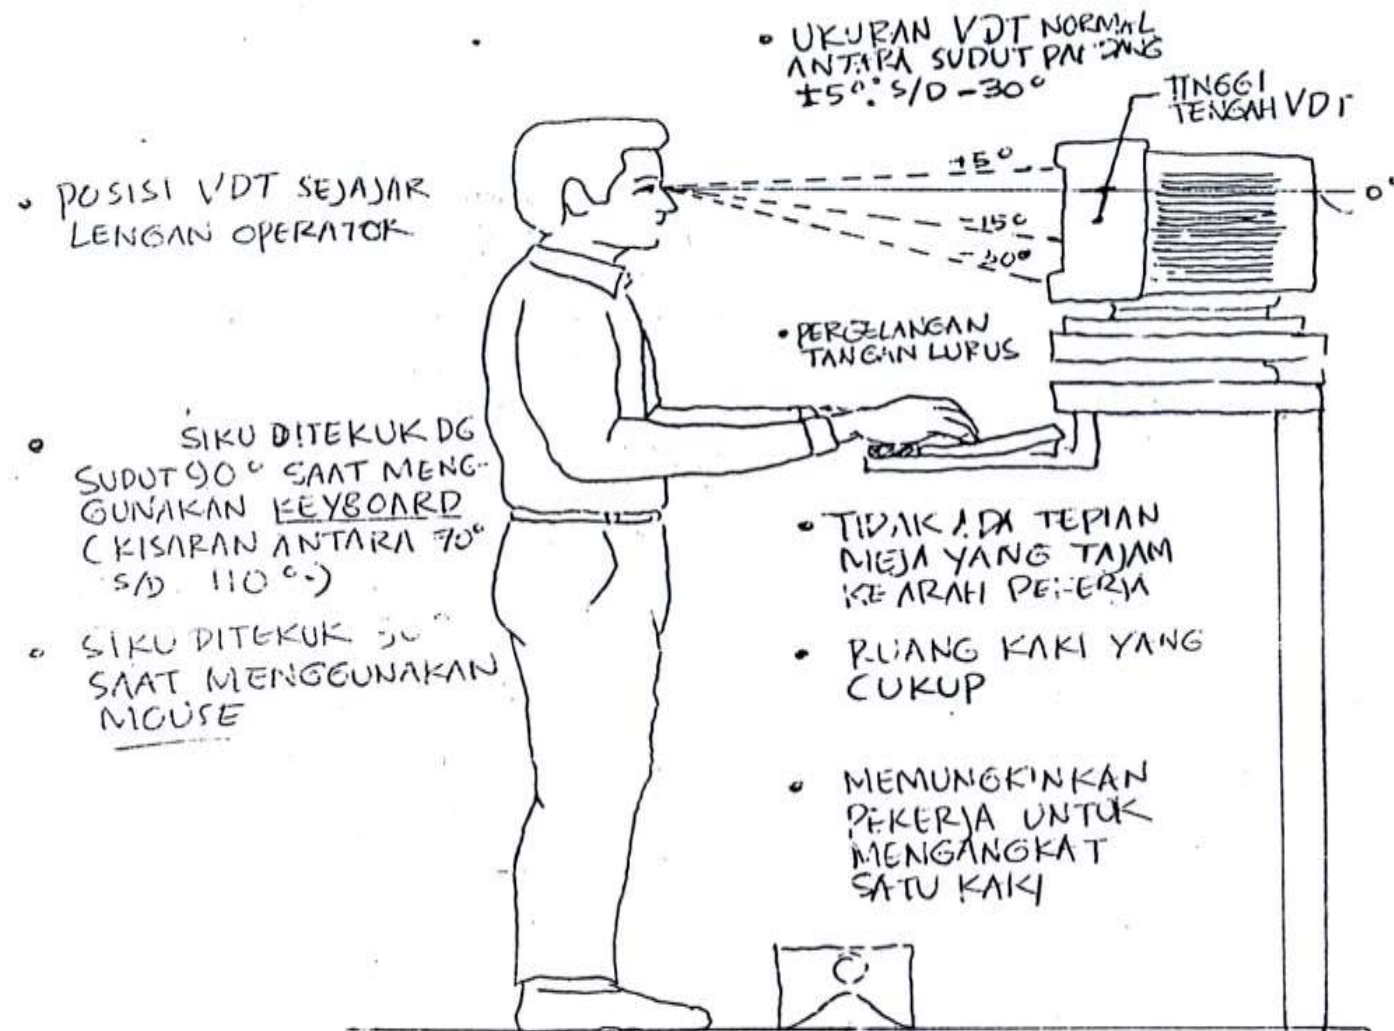 • UKURAN VDT NORMAL
ANTARA SUDUT PANDANG
±5° S/D -30°
TINGGI
TENGAH VDT
+5°
0°
-15°
-30°
• POSISI VDT SEJAJAR
LENGAN OPERATOR
• PERGELANGAN
TANGAN LURUS
• SIKU DITEKUK DG
SUDUT 90° SAAT MENG-
GUNAKAN KEYBOARD
(KISARAN ANTARA 70°
S/D 110°)
• SIKU DITEKUK
SAAT MENGGUNAKAN
MOUSE
• TIDAK ADA TEPIAN
MEJA YANG TAJAM
KE ARAH PEKERJA
• RUANG KAKI YANG
CUKUP
• MEMUNGKINKAN
PEKERJA UNTUK
MENGANGKAT
SATU KAKI